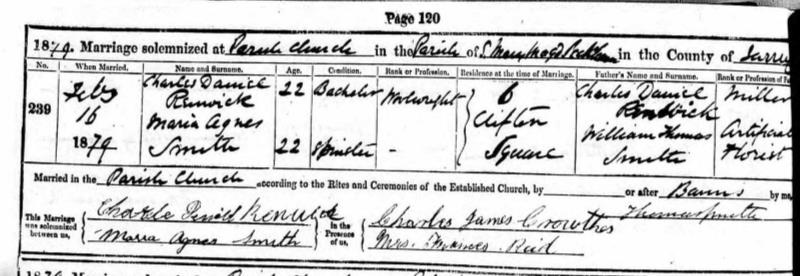 Page 120
1879. Marriage solemnized at Parish Church in the Parish of S. Mary Magd Peckham in the County of Surrey
No. When Married. Name and Surname. Age. Condition. Rank or Profession. Residence at the time of Marriage. Father's Name and Surname. Rank or Profession of
239 Feby 16 1879 Charles Daniel Renwick 22 Bachelor 6 Clifton Square Charles Daniel Renwick Miller
Maria Agnes Smith 22 Spinster - William Thomas Smith Artificial Florist
Married in the Parish Church according to the Rites and Ceremonies of the Established Church, by or after Banns by me,
Thomas Smith
This Marriage was solemnized between us, Charles Renwick In the Presence of us, Charles James Crowther
Maria Agnes Smith Mrs. Frances Reid
1879. Marriage solemnized at